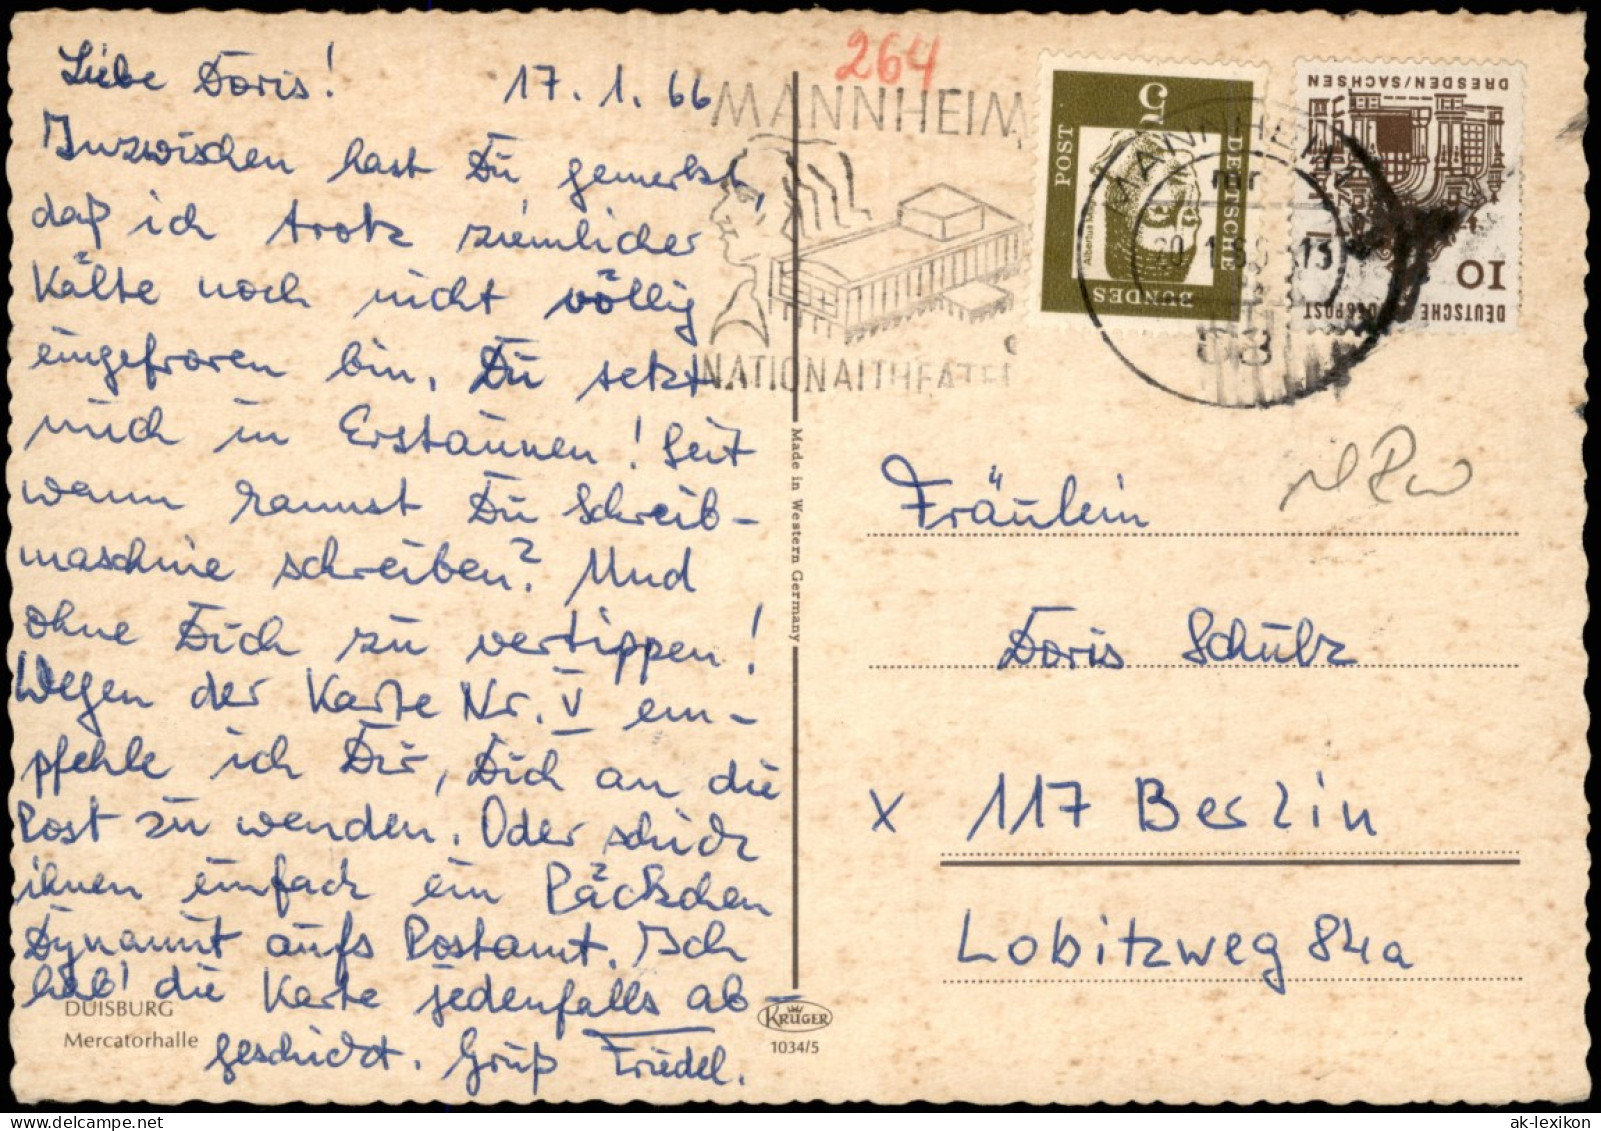 Liebe Doris! 17.1.66
Inzwischen hast Du gemerkt,
daß ich trotz ziemlicher
Kälte noch nicht völlig
eingefroren bin. Du setzt
mich in Erstaunen! Seit
wann kannst Du Schreib-
maschine schreiben? Und
ohne Dich zu vertippen!
Wegen der Karte Nr. V em-
pfehle ich Dir, Dich an die
Post zu wenden. Oder schick
ihnen einfach ein Päckchen
Dynamit aufs Postamt. Ich
hab' die Karte jedenfalls ab-
geschickt. Gruß Friedel.
DUISBURG
Mercatorhalle
Made in Western Germany
KRÜGER
1034/5
264
MANNHEIM
NATIONALTHEATER
5
DEUTSCHE
BUNDES
POST
MANNHEIM
DRESDEN/SACHSEN
10
DEUTSCHE BUNDESPOST
Fräulein
Doris Schulz
x 117 Berlin
Lobitzweg 84a
ak-lexikon.com